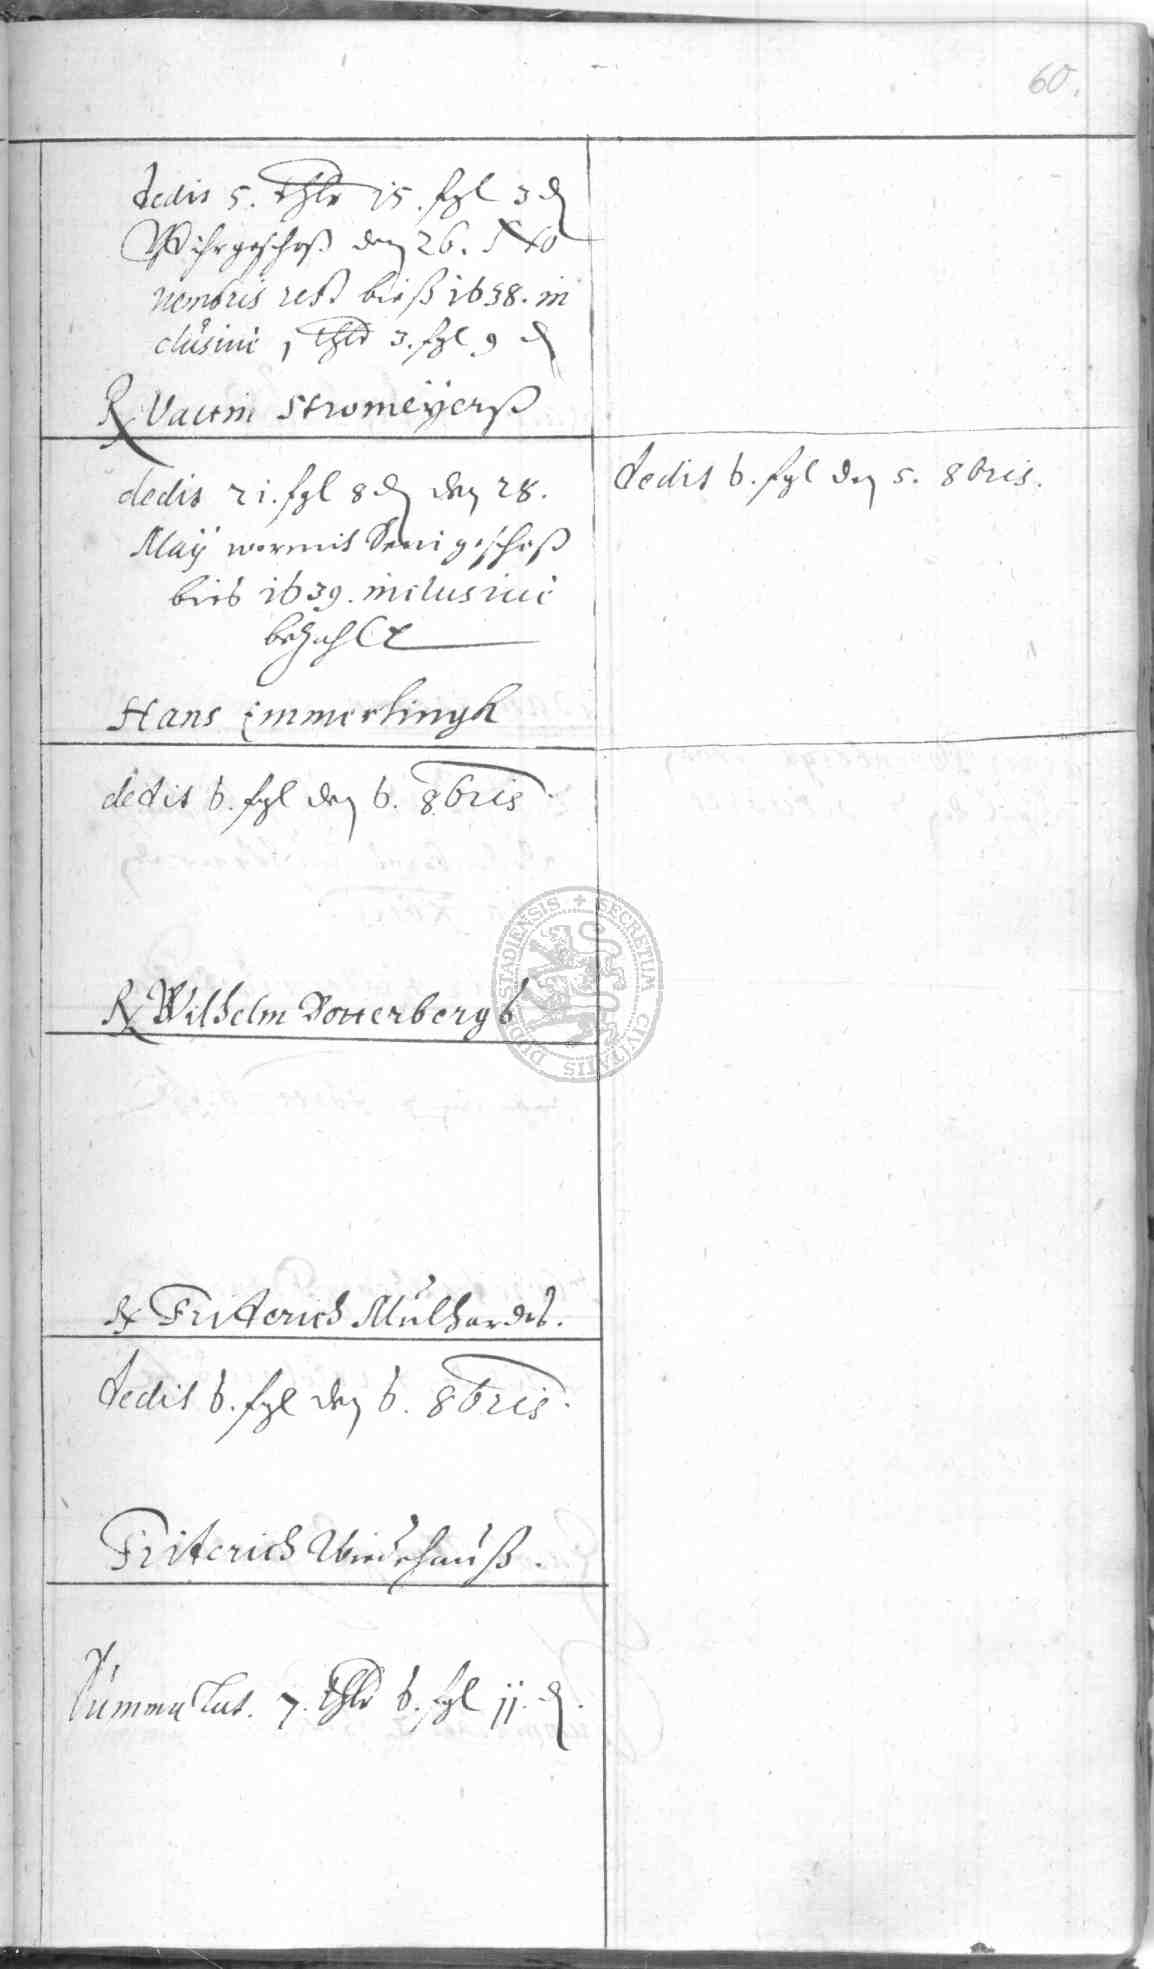 60.
dedit 5. thlr 15. ßgl 3 d
den 26. No
uembris rest bieß 1638. in
clusiuè 1 thlr 3. ßgl 9 d
Stromeÿerß
dedit 21. ßgl 8 d den 28.
Maÿ wormit sein geschoß
bieß 1639. inclusiuè
bezahlt
Hans Emmerlingk
dedit 6. ßgl den 6. 8bris
Wilhelm Dotterbergß
Friderich Mülhardeß.
dedit 6. ßgl den 6. 8bris.
Friderich
Summa Lat. 7. thlr 6. ßgl 11. d.
dedit 6. ßgl den 5. 8bris.
SECRETUM CIVITATIS DUDERSTADIENSIS